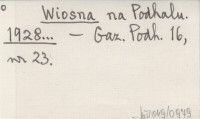 Wiosna na Podhalu.
1928... — Gaz. Podh. 16,
nr 23.